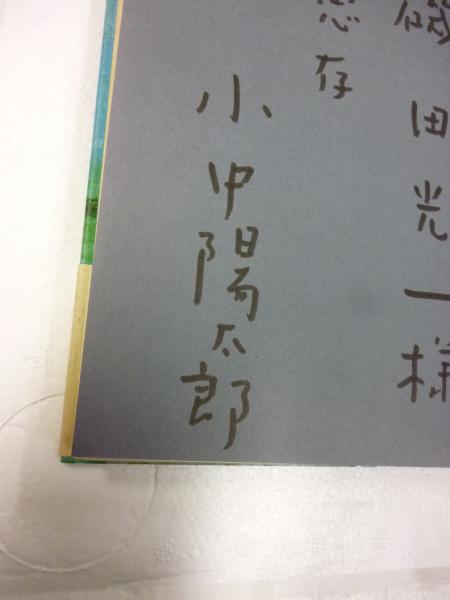 磯田光一様
恵存
小中陽太郎